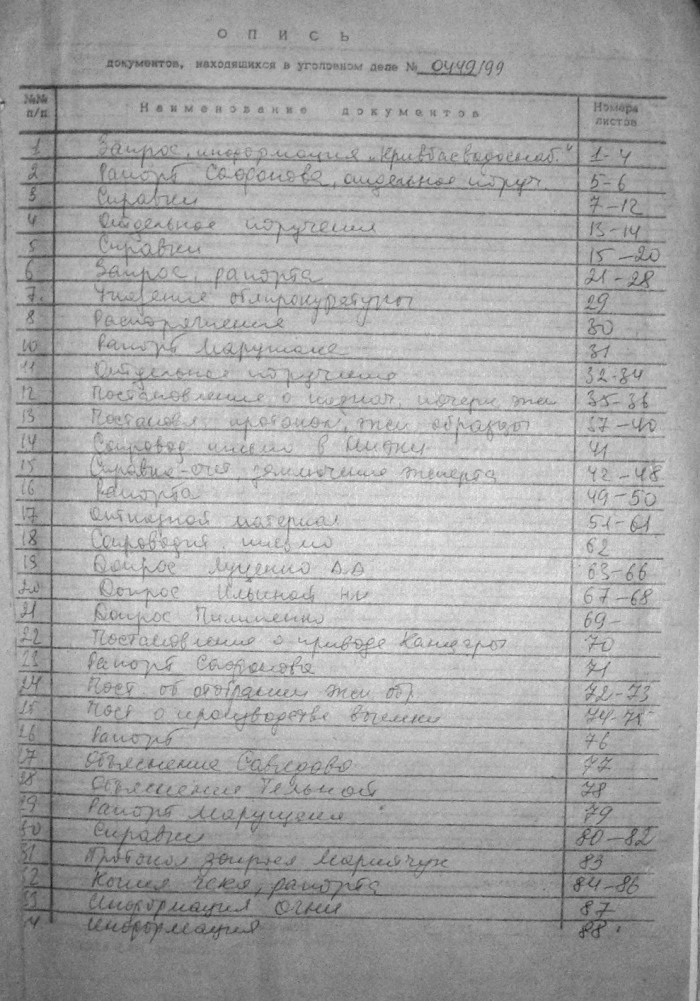 ОПИСЬ
документов, находящихся в уголовном деле № 0449/99
№№ п/п Наименование документов Номера листов
1 Запрос, информация "Кривбасводоснаб." 1-4
2 Рапорт Сафонова, отдельное поруч. 5-6
3 Справки 7-12
4 Отдельное поручения 13-14
5 Справки 15-20
6 Запрос, рапорта 21-28
7. Указание облпрокуратуры 29
8 Распоряжение 30
10 Рапорт 31
11 Отдельное поручение 32-34
12 Постановление о назнач. почерк экс 35-36
13 Постановл протокол, экс образцы 37-40
14 Сопровод письмо в 41
15 Справка-счет, заключение эксперта 42-48
16 Рапорта 49-50
17 Отказной материал 51-61
18 Сопроводит письмо 62
19 Допрос Луценко 63-66
20 Допрос Ильиной 67-68
21 Допрос Пилипенко 69-
22 Постановление о приводе 70
23 Рапорт Сафонова 71
24 Пост об отобрании экс обр 72-73
25 Пост о производстве выемки 74-75
26 Рапорт 76
27 Объяснение 77
28 Объяснение Тельной 78
29 Рапорт 79
30 Справки 80-82
31 Протокол 83
32 Копия чека, рапорта 84-86
33 Информация ОГНИ 87
4 Информация 88